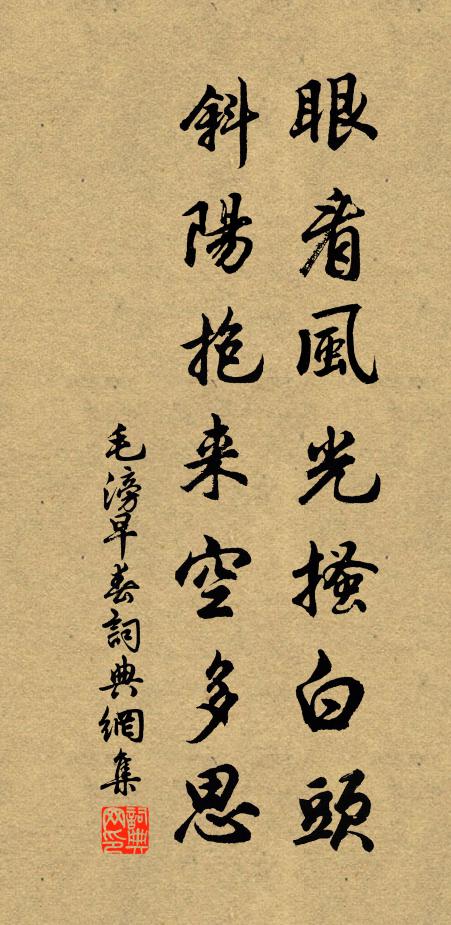 眼看風光搔白頭
斜陽抱来空多思
毛滂早春詞典網集
詞典網印